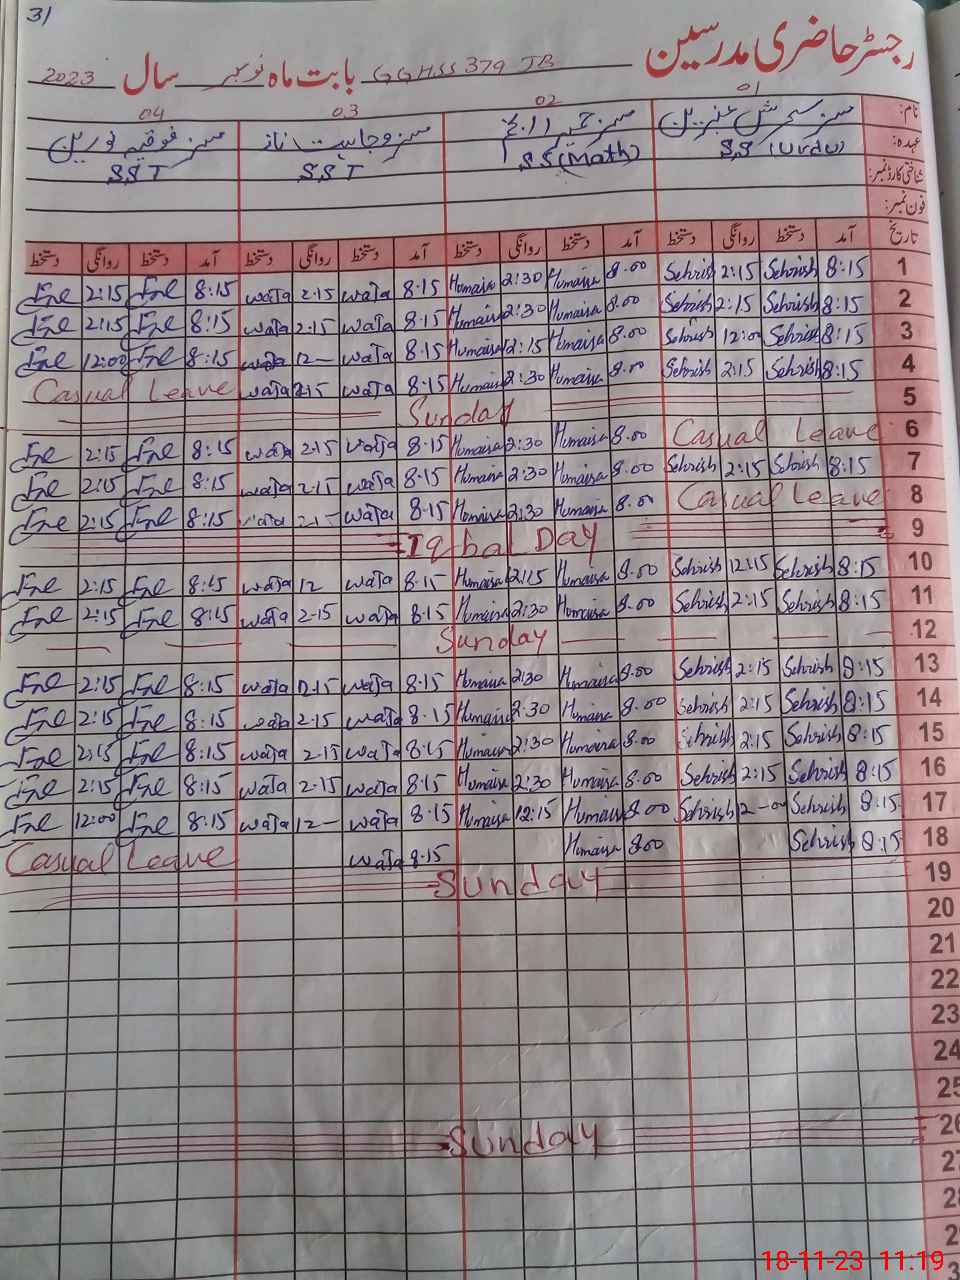 31
رجسٹر حاضری مدرسین
GGHSS 379 JB بابت ماہ نومبر سال 2023
01 02 03 04
نام: مسز سحرش عنبرین مسز وجاہت ناز مسز فوقیہ نورین
عہدہ: S.S (Urdu) S.S (Math) S.S.T S.S.T
شناختی کارڈ نمبر:
فون نمبر:
تاریخ آمد دستخط روانگی دستخط آمد دستخط روانگی دستخط آمد دستخط روانگی دستخط آمد دستخط روانگی دستخط
1 8:15 Sehrish 2:15 Sehrish 8.00 Humaisa 2:30 Humaisa 8.15 wata 2.15 wata 8:15 2:15
2 8:15 Sehrish 2:15 Sehrish 8.00 Humaisa 2:30 Humaisa 8.15 wata 2.15 wata 8:15 2:15
3 8:15 Sehrish 12:00 Sehrish 8.00 Humaisa 12:15 Humaisa 8.15 wata 12 wata 8:15 12:00
4 8:15 Sehrish 2:15 Sehrish 8.00 Humaisa 2:30 Humaisa 8.15 wata 2.15 wata Casual Leave
5 Sunday
6 Casual Leave 8.00 Humaisa 2:30 Humaisa 8.15 wata 2.15 wata 8:15 2:15
7 8:15 Sehrish 2:15 Sehrish 8.00 Humaisa 2:30 Humaisa 8.15 wata 2.15 wata 8:15 2:15
8 Casual Leave 8.00 Humaisa 2:30 Humaisa 8.15 wata 2.15 wata 8:15 2:15
9 Iqbal Day
10 8:15 Sehrish 12:15 Sehrish 8.00 Humaisa 12:15 Humaisa 8.15 wata 12 wata 8:15 2:15
11 8:15 Sehrish 2:15 Sehrish 8.00 Humaisa 2:30 Humaisa 8.15 wata 2.15 wata 8:15 2:15
12 Sunday
13 8:15 Sehrish 2:15 Sehrish 8.00 Humaisa 2:30 Humaisa 8.15 wata 2.15 wata 8:15 2:15
14 8:15 Sehrish 2:15 Sehrish 8.00 Humaisa 2:30 Humaisa 8.15 wata 2.15 wata 8:15 2:15
15 8:15 Sehrish 2:15 Sehrish 8.00 Humaisa 2:30 Humaisa 8.15 wata 2.15 wata 8:15 2:15
16 8:15 Sehrish 2:15 Sehrish 8.00 Humaisa 2:30 Humaisa 8.15 wata 2.15 wata 8:15 2:15
17 8:15 Sehrish 12-00 Sehrish 8.00 Humaisa 12:15 Humaisa 8.15 wata 12 wata 8:15 12:00
18 8:15 Sehrish 8.00 Humaisa 8.15 wata Casual Leave
19 Sunday
20
21
22
23
24
25
26 Sunday
27
28
18-11-23 11:19